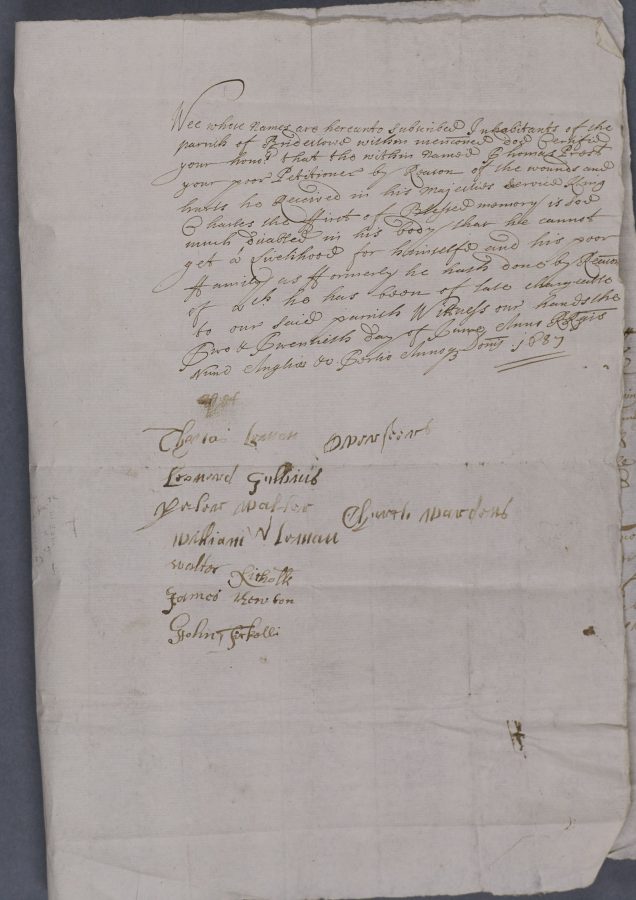 Wee whose Names are hereunto subscribed Inhabitants of the
parish of Bridestowe within mencioned doe Certifie
your honors that the within Named Thomas Prest
your poor Petitioner by Reason of the wounds and
hurts he Received in his Majesties Service King
Charles the ffirst of Blessed memory is soe
much disabled in his body that he cannot
get a Livelihood for himselfe and his poor
ffamily as fformerly he hath done by Reason
of wch he has been of late chargeable
to our said parish Witness our hands the
Two & Twentieth day of June Anno Regis
Nunc Angliæ &c Tertio Annoq Domi 1687
Thomas Leman Overseers
Leonerd
Peter Walter Church wardens
William Leman
Walter
James Newton
John